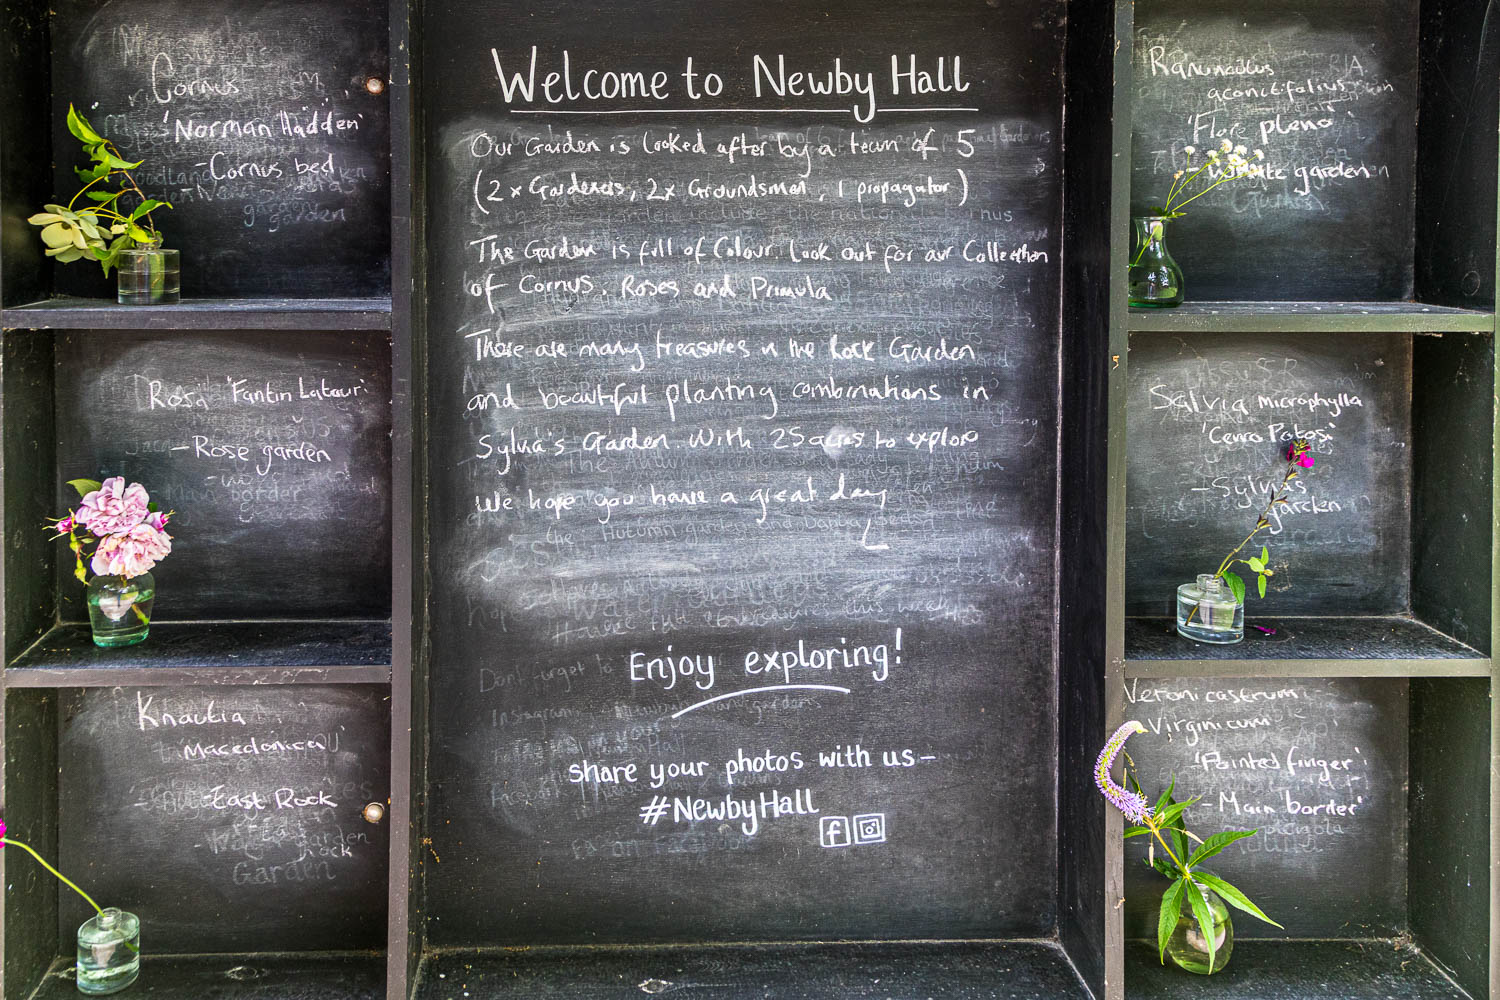 Cornus
'Norman Hadden'
- Cornus bed
Rosa 'Fantin Latour'
- Rose garden
Knautia
Macedonica
- East Rock
Garden
Welcome to Newby Hall
Our Garden is looked after by a team of 5
(2 x Gardeners, 2x Groundsman, 1 propagator)
The Garden is full of Colour. Look out for our Collection
of Cornus, Roses and Primula
There are many treasures in the Rock Garden
and beautiful planting combinations in
Sylvia's Garden. With 25 acres to explore
We hope you have a great day
Enjoy exploring!
share your photos with us -
#NewbyHall
Ranunculus
aconitifolius
'Flore pleno'
- White garden
Salvia microphylla
'Cerro Potosi'
- Sylvias
garden
Veronicastrum
Virginicum
'Pointed finger'
- Main border